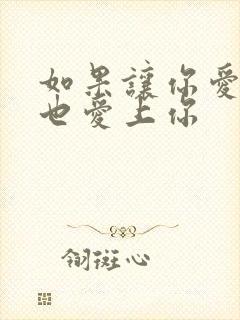 如果讓你愛
也愛上你
翎斑心